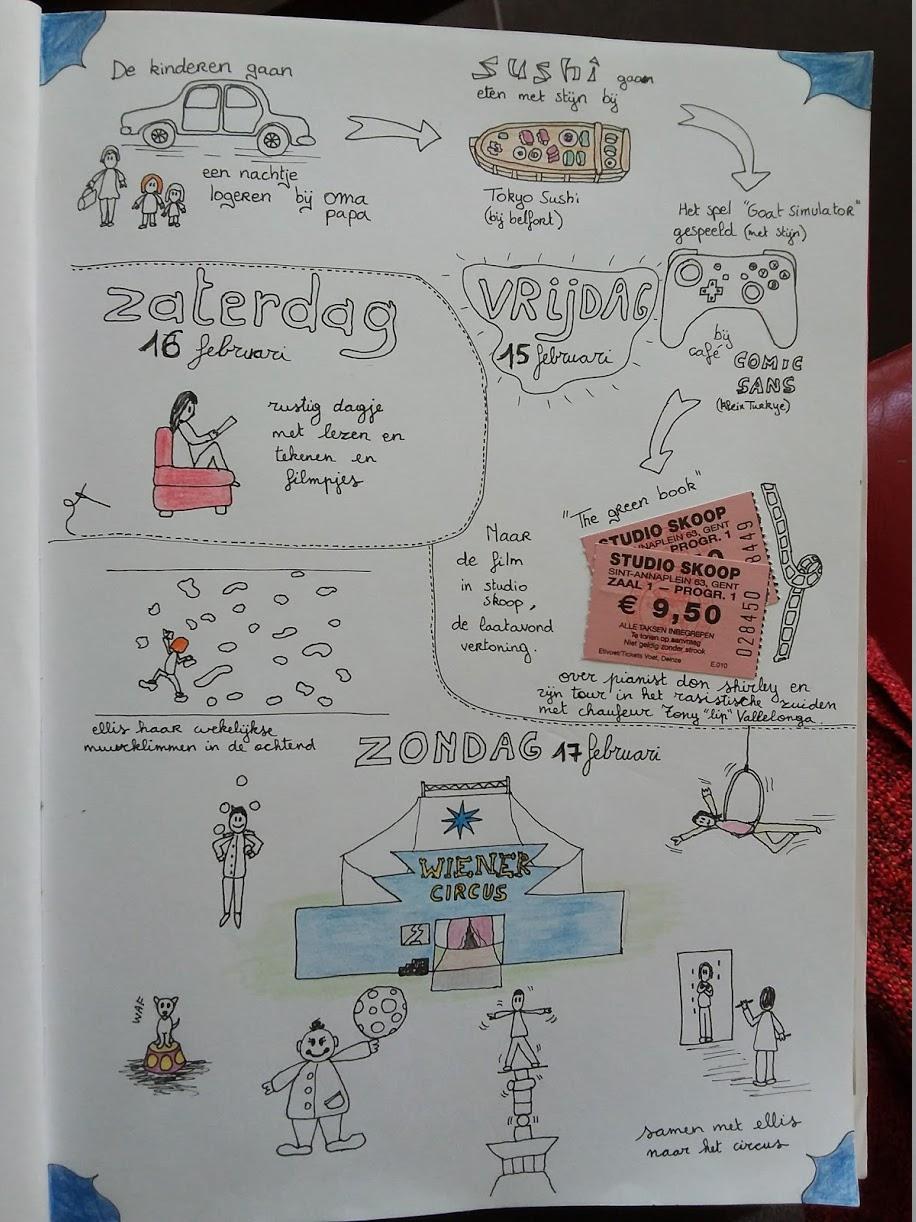 De kinderen gaan
een nachtje
logeren bij oma
papa
SUSHI gaan
eten met stijn bij
Tokyo Sushi
(bij belfort)
Het spel "Goat Simulator"
gespeeld (met stijn)
Y
X
B
A
bij
café
COMIC
SANS
(Klein Turkye)
VRIJDAG
15 februari
"The green book"
STUDIO SKOOP
ANNAPLEIN 63, GENT
PROGR. 1
8449
STUDIO SKOOP
SINT-ANNAPLEIN 63, GENT
ZAAL 1 – PROGR. 1
€ 9,50
ALLE TAKSEN INBEGREPEN
Te tonen op aanvraag
Niet geldig zonder strook
Elivoet/Tickets Voet, Deinze
E.010
028450
Naar
de film
in studio
skoop,
de laatavond
vertoning.
over pianist don shirley en
zijn tour in het rasistische zuiden
met chaufeur Tony "lip" Vallelonga.
zaterdag
16 februari
rustig dagje
met lezen en
tekenen en
filmpjes
ellis haar wekelijkse
muurklimmen in de ochtend
ZONDAG 17 februari
WIENER
CIRCUS
WAF
samen met ellis
naar het circus